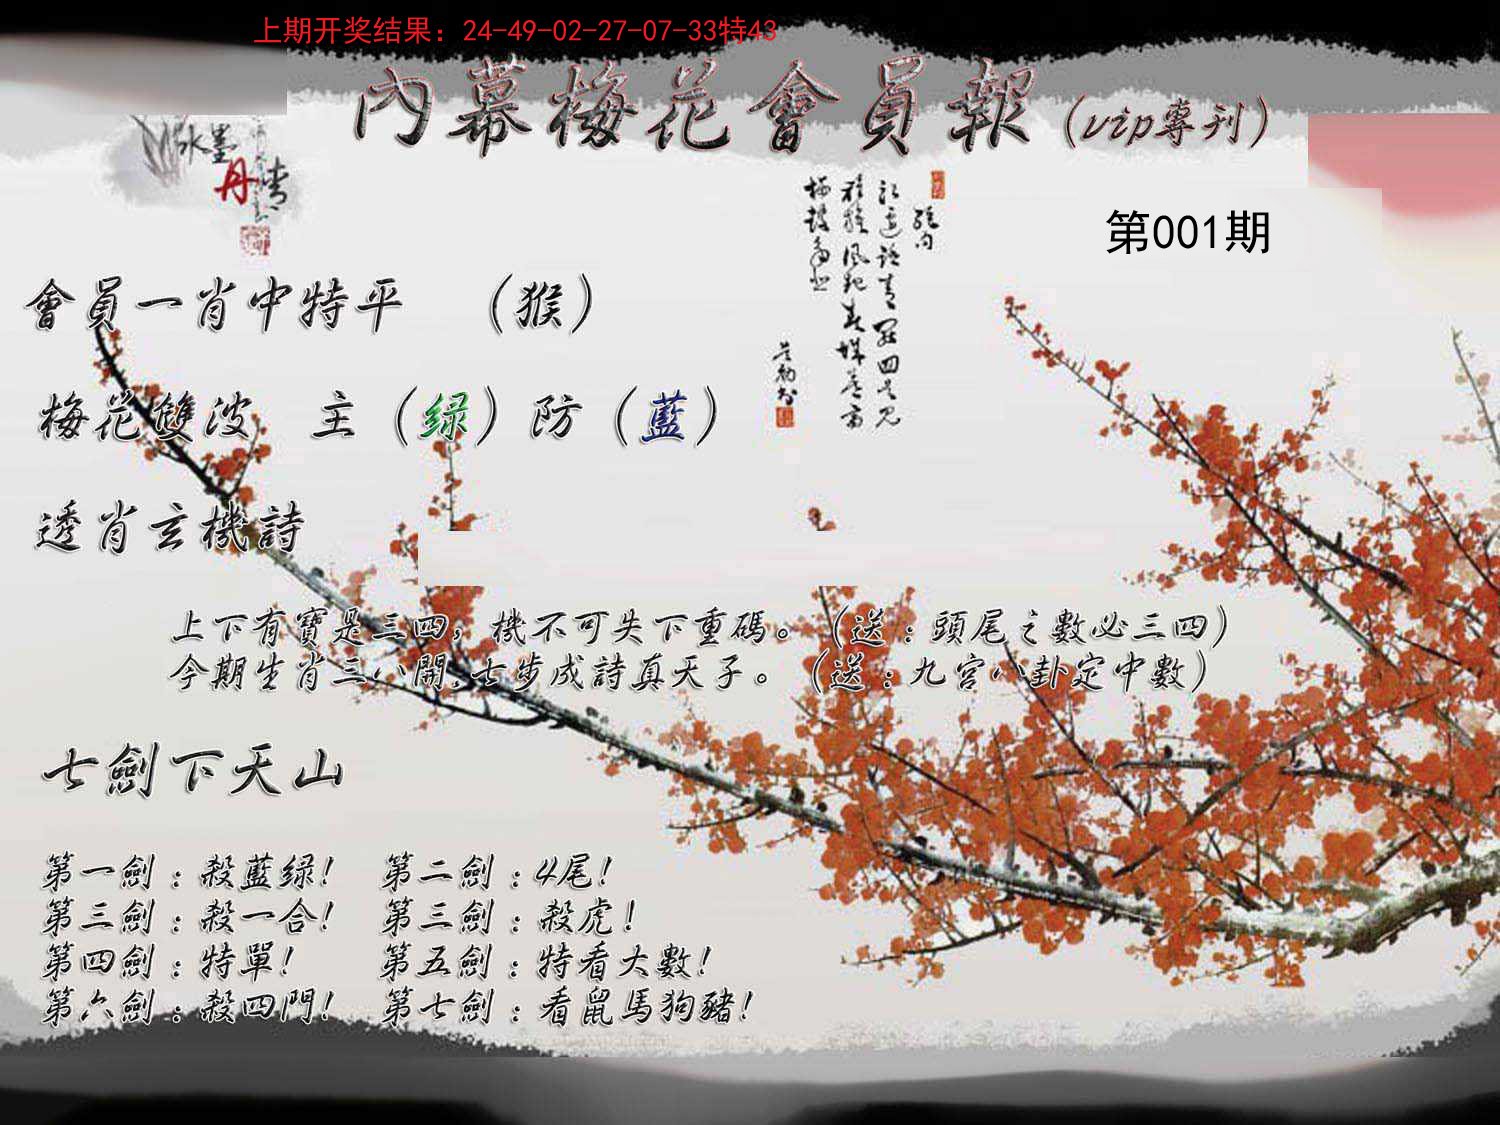 上期开奖结果：24-49-02-27-07-33特43
內幕梅花會員報（vip專刊）
水墨
丹青
第001期
會員一肖中特平 （猴）
梅花雙波 主（绿）防（藍）
透肖玄機詩
上下有寶是三四，機不可失下重碼。（送：頭尾之數必三四）
今期生肖三八開，七步成詩真天子。（送：九宮八卦定中數）
七劍下天山
第一劍：殺藍绿! 第二劍：4尾!
第三劍：殺一合! 第三劍：殺虎!
第四劍：特單! 第五劍：特看大數!
第六劍：殺四門! 第七劍：看鼠馬狗豬!